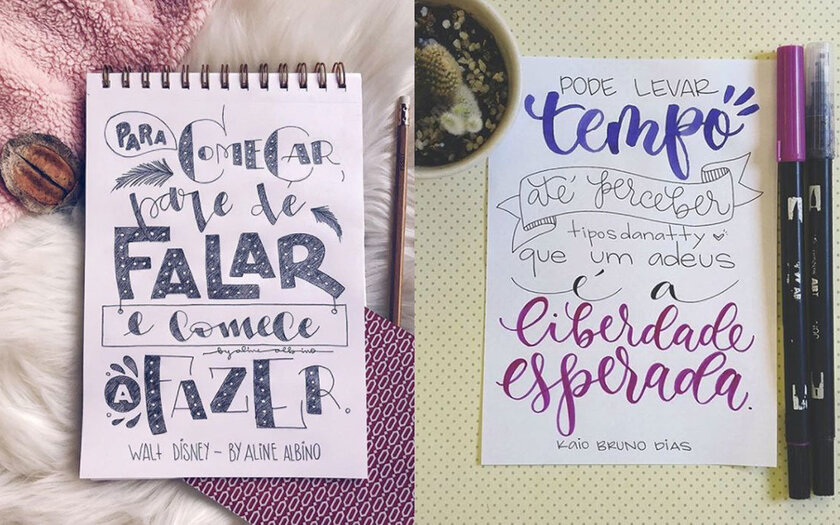 PARA
COMEÇAR,
pare de
FALAR
e comece
by aline albino
A FAZER.
WALT DISNEY - BY ALINE ALBINO
PODE LEVAR
tempo
até perceber
tiposdanatty
que um adeus
é a
liberdade
esperada.
KAIO BRUNO DIAS